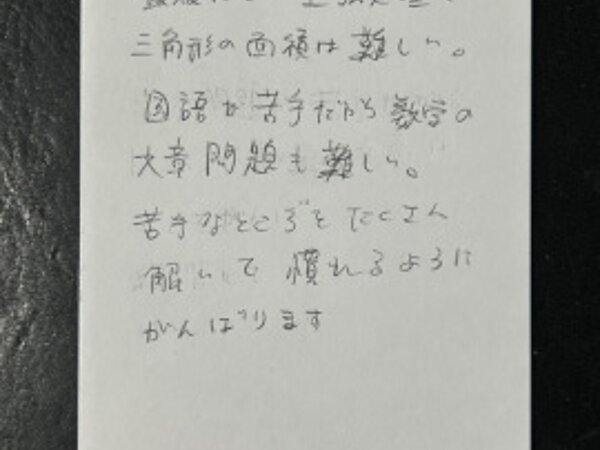 三角形の面積は難しい。
国語が苦手だから数学の
文章問題も難しい。
苦手なところをたくさん
解いて慣れるように
がんばります